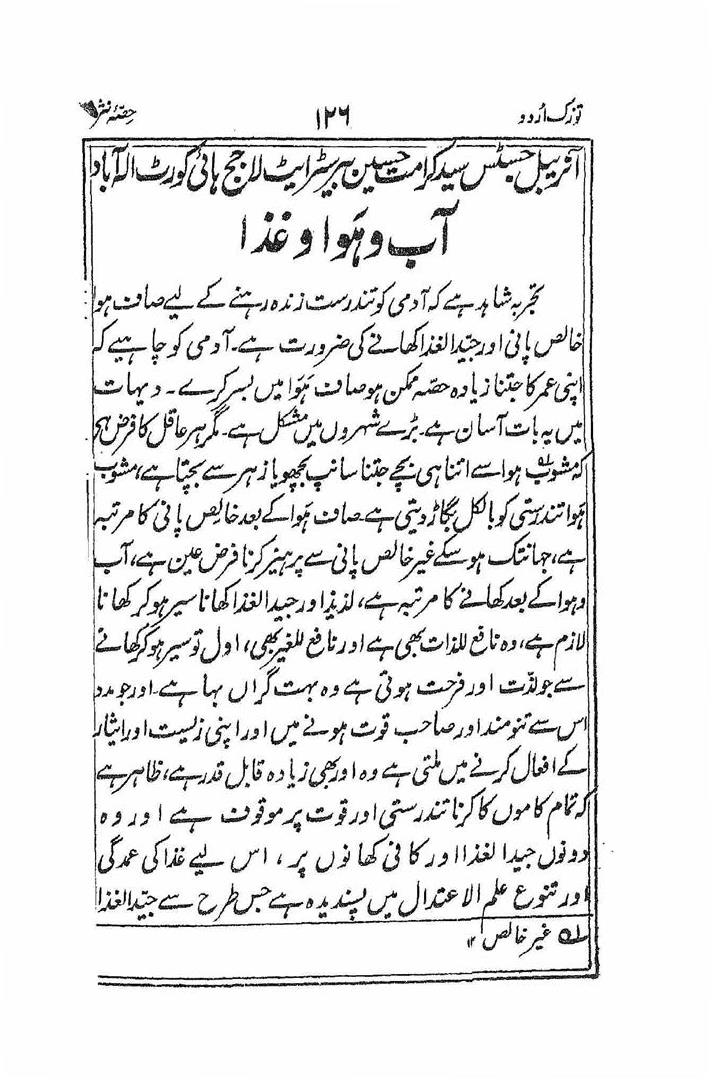 تزک اُردو ۱۲۶ حصّۂ نثر
آنریبل جسٹس سید کرامت حسین بیرسٹر ایٹ لا جج ہائی کورٹ الہ آباد
آب و ہَوا و غذا
تجربہ شاہد ہے کہ آدمی کو تندرست زندہ رہنے کے لیے صاف ہوا
خالص پانی اور جیّد الغذا کھانے کی ضرورت ہے۔ آدمی کو چاہیے کہ
اپنی عمر کا جتنا زیادہ حصّہ ممکن ہو صاف ہَوا میں بسر کرے۔ دیہات
میں یہ بات آسان ہے۔ بڑے شہروں میں مشکل ہے۔ مگر ہر عاقل کا فرض ہے
کہ مشوب ۱؎ ہوا سے اتنا ہی بچے جتنا سانپ بچھو یا زہر سے بچتا ہے، مشوب
ہَوا تندرستی کو بالکل بگاڑ دیتی ہے۔ صاف ہَوا کے بعد خالِص پانی کا مرتبہ
ہے، جہانتک ہو سکے غیر خالص پانی سے پرہیز کرنا فرض عین ہے، آب
و ہوا کے بعد کھانے کا مرتبہ ہے، لذیذ اور جید الغذا کھانا سیر ہو کر کھانا
لازم ہے، وہ نافع للذات بھی ہے اور نافع للغیر بھی، اول تو سیر ہو کر کھانے
سے جو لذّت اور فرحت ہوتی ہے وہ بہت گراں بہا ہے۔ اور جو مدد
اس سے تنومند اور صاحب قوت ہونے میں اور اپنی زیست اور ایثار
کے افعال کرنے میں ملتی ہے وہ اور بھی زیادہ قابل قدر ہے، ظاہر ہے
کہ تمام کاموں کا کرنا تندرستی اور قوت پر موقوف ہے اور وہ
دونوں جید الغذا اور کافی کھانوں پر، اس لیے غذا کی عمدگی
اور تنوع علم الاعتدال میں پسندیدہ ہے جس طرح سے جیّد الغذا
۱؎ غیر خالص ۱۲